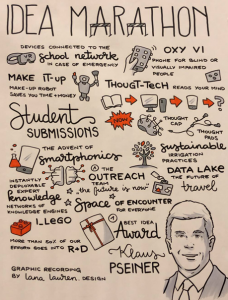 IDEA MARATHON
DEVICES CONNECTED TO THE
school network
IN CASE OF EMERGENCY
OXY VI
PHONE FOR BLIND OR
VISUALLY IMPAIRED
PEOPLE
MAKE IT-UP
MAKE-UP ROBOT
SAVES YOU TIME + MONEY
THOUGT-TECH
READS YOUR MIND
Student
SUBMISSIONS
NOW!
THOUGHT
CAP
THOUGHT
PADS
THE ADVENT OF
smartphonics
sustainable
IRRIGATION
PRACTICES
INSTANTLY
DEPLOYABLE
EXPERT
knowledge
NETWORKS OF
KNOWLEDGE ENGINES
THE
OUTREACH
TEAM
the future is now
DATA LAKE
THE FUTURE OF
travel
Space OF ENCOUNTER
FOR EVERYONE
I.LEGO
MORE THAN 50% OF OUR
EFFORTS GOES INTO R+D
BEST IDEA
Award
Klaus
PSEINER
GRAPHIC RECORDING
BY lana lauren. DESIGN